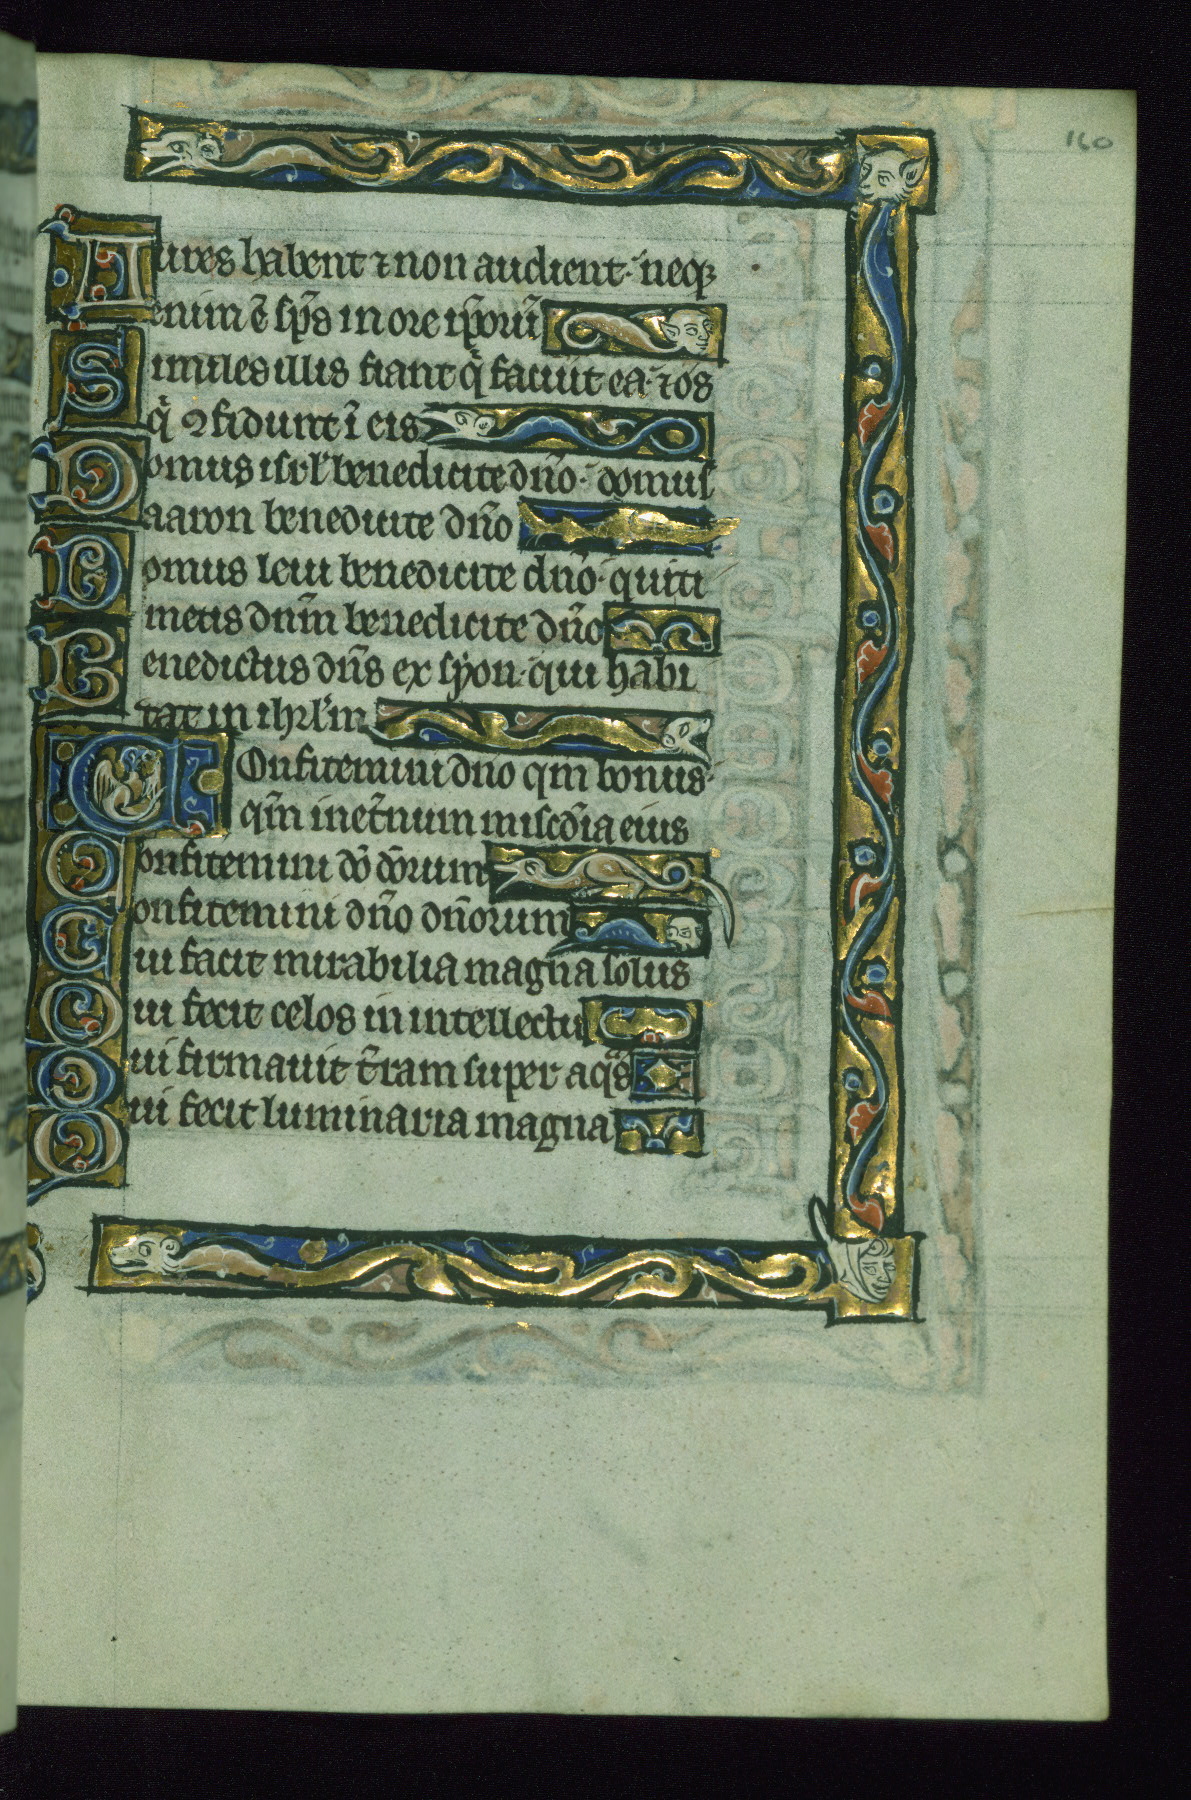 160
Aures habent ⁊ non audient· neqꝫ
enim ē sp̄s in ore ip̄oruɱ̄
Similes illis fiant q̇ faciūt ea· ⁊ o̅s
q̇ ꝯfidunt ī eis
Domus isrl̓ benedicite dn̄o· domus
aaron benedicite dn̄o
Domus leui benedicite dn̄o· qui ti
metis dnm̄ benedicite dn̄o
Benedictus dn̄s ex syon· qui habi
tat in ihrl̓m
Confitemini dn̄o qm̄ bonus·
qm̄ in et̄num mis̄cdia eius
Confitemini dō dōrum
Confitemini dn̄o dn̄orum
Qui facit mirabilia magna solus
Qui fecit celos in intellectu
Qui firmauit t̄ram super aqͣs
Qui fecit luminaria magna